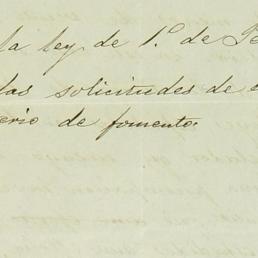 la ley de 1.º de
las solicitudes de
erio de fomento.